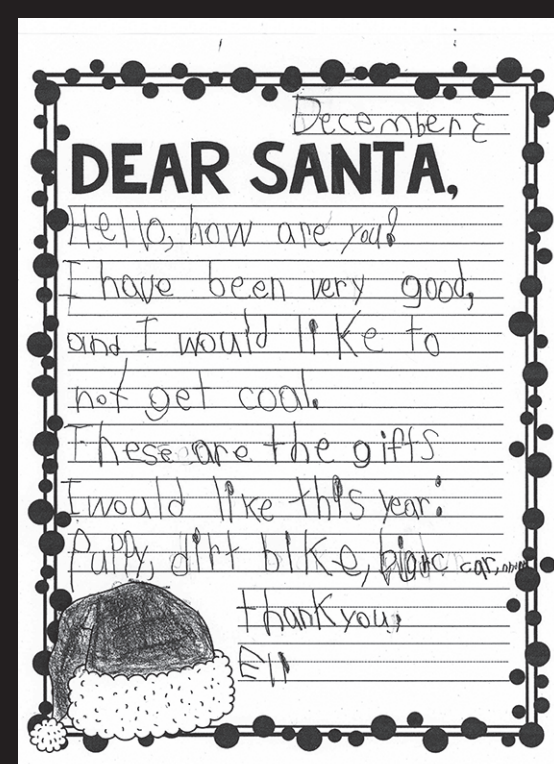 December
DEAR SANTA,
Hello, how are you?
I have been very good,
and I would like to
not get coal.
These are the gifts
I would like this year:
Puppy, dirt bike, car,
thank you,
Eli